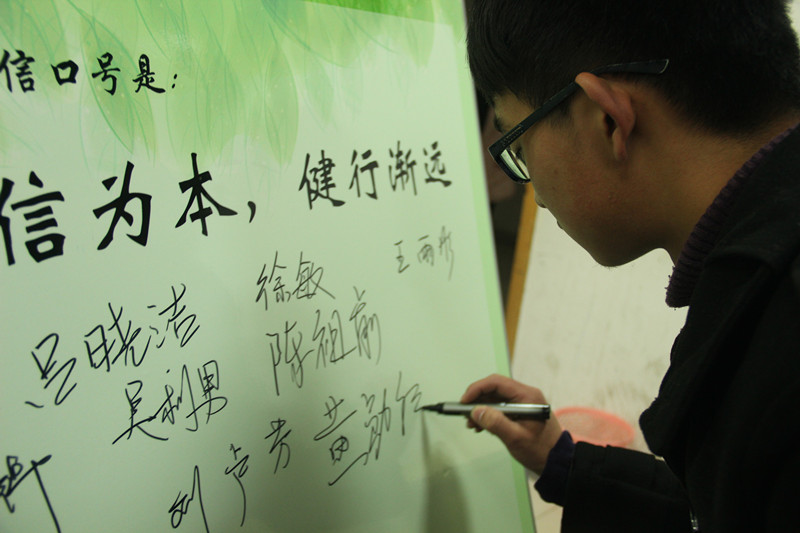 信口号是：
信为本，健行渐远
徐敏 王雨彤
吴晓洁 陈祖前
吴利男
刘芦芳 黄勋